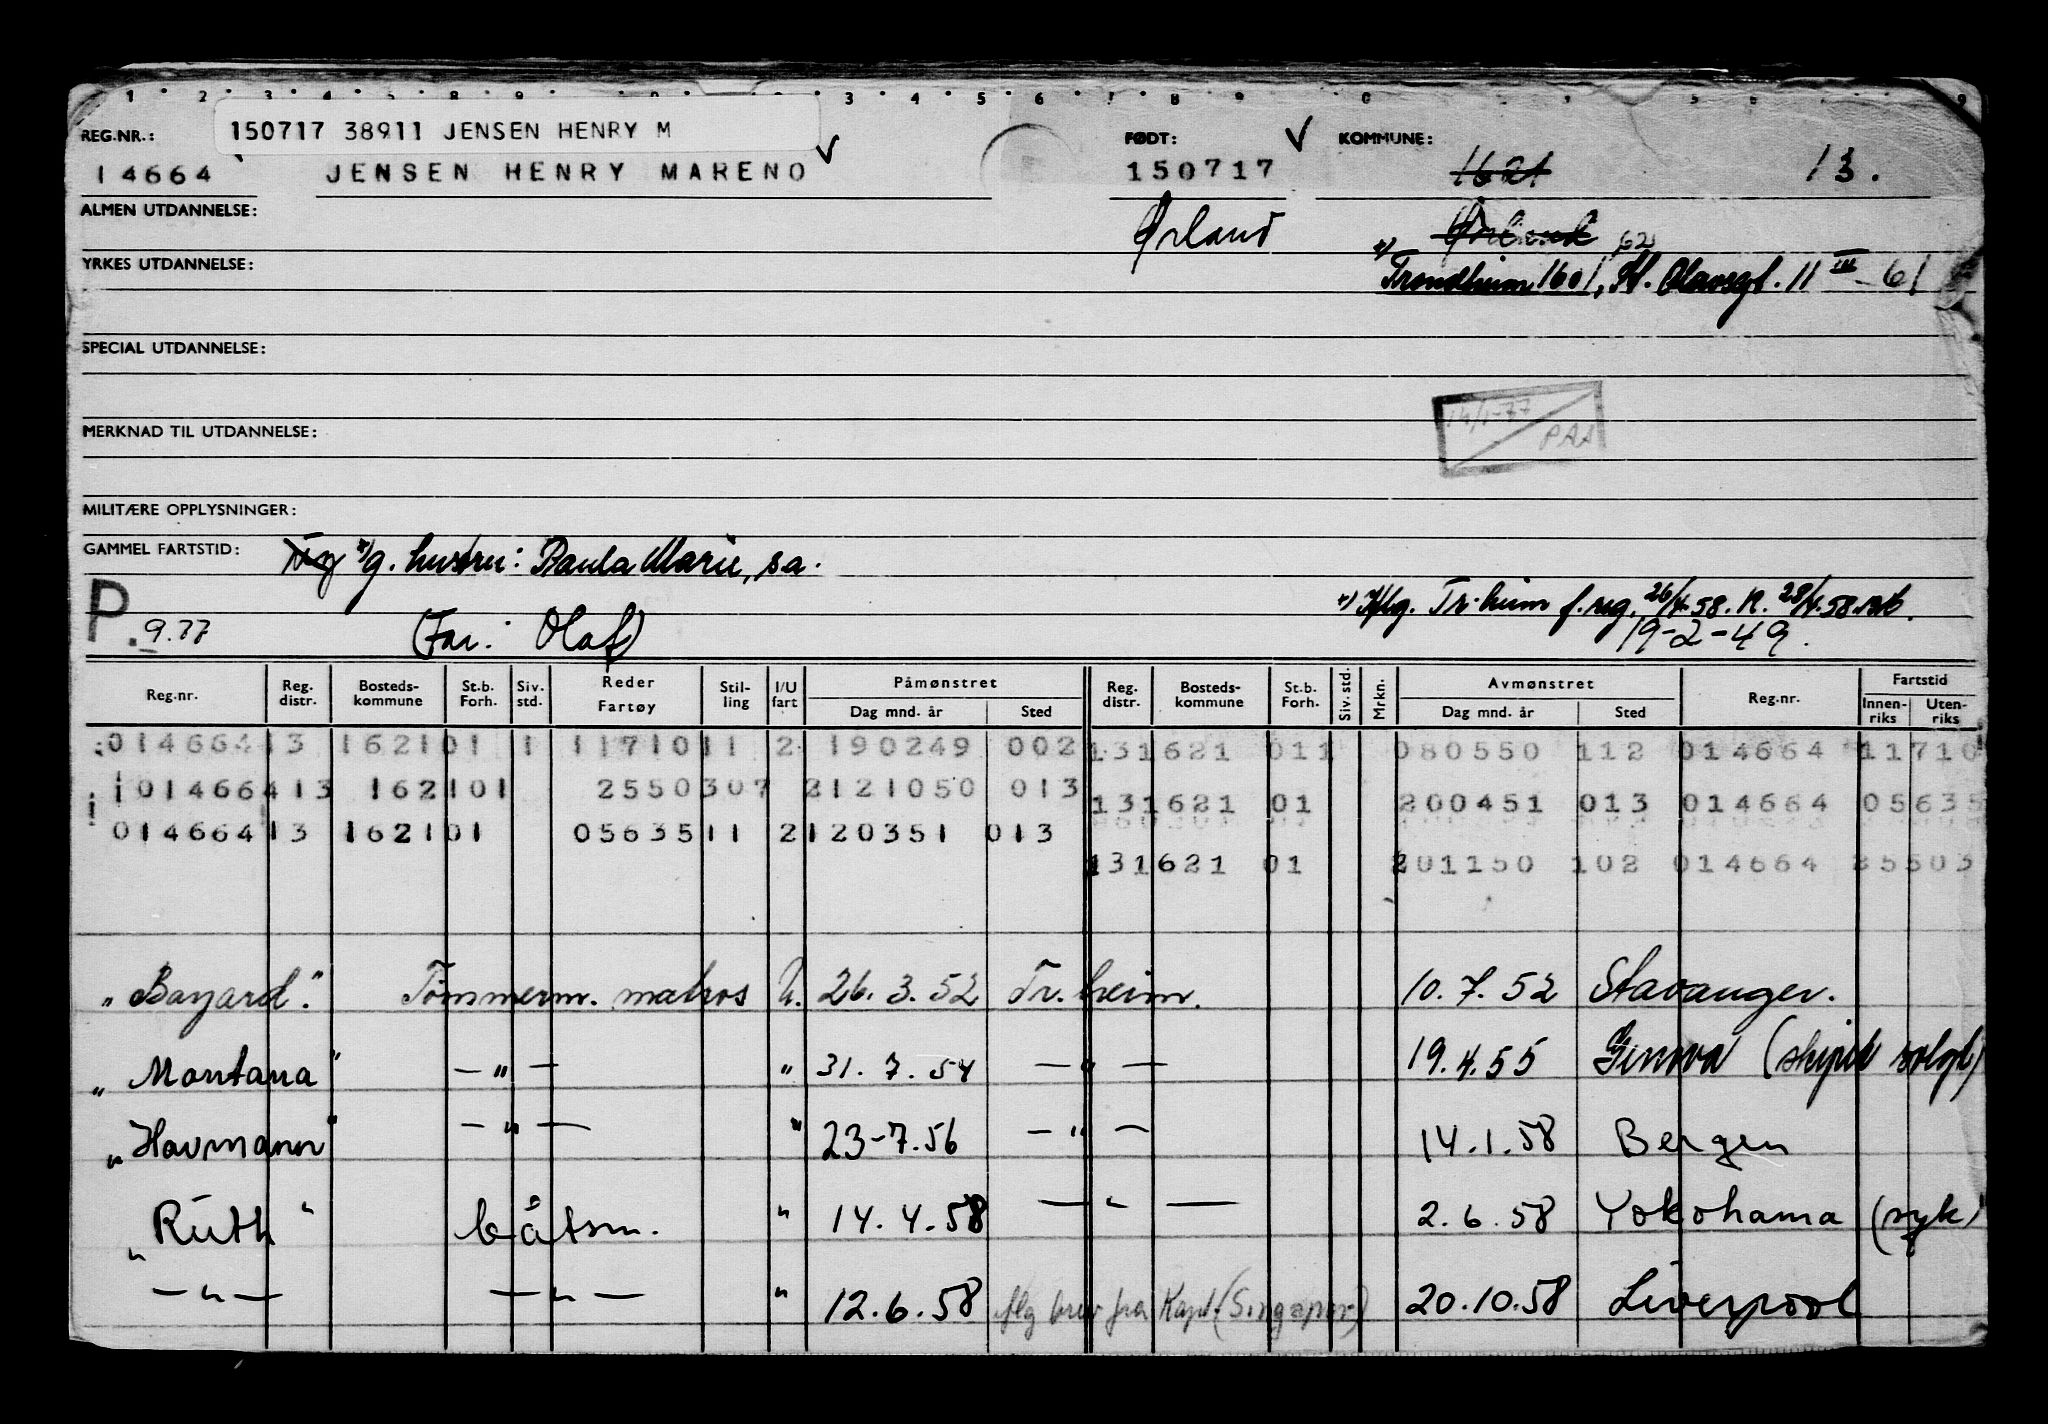 REG.NR.: 150717 38911 JENSEN HENRY M FØDT: KOMMUNE:
14664 JENSEN HENRY MARENO 150717 1621 13.
ALMEN UTDANNELSE: Ørland Ørland
62
YRKES UTDANNELSE: Trondheim 1601, St. Olavsgt. 11 III - 61
SPECIAL UTDANNELSE:
14/1-77
MERKNAD TIL UTDANNELSE:
MILITÆRE OPPLYSNINGER:
GAMMEL FARTSTID: g. hustru: Paula Marie, sa.
x) Iflg. Tr.heim f. reg. 26/4.58. R. 28/4.58.
P. 9.77 (Far: Olaf) 19-2-49.
Reg.nr. Reg. distr. Bosteds-kommune St.b. Forh. Siv. std. Reder Fartøy Stil-ling I/U fart Påmønstret Dag mnd. år Sted Reg. distr. Bosteds-kommune St.b. Forh. Siv. std. Mrkn. Avmønstret Dag mnd. år Sted Reg.nr. Fartstid Innen-riks Uten-riks
014664 13 1621 01 1 11710 11 2 190249 002 13 1621 01 1 080550 112 014664 11710
014664 13 1621 01 25503 07 2 121050 013 13 1621 01 200451 013 014664 05635
014664 13 1621 01 05635 11 2 120351 013
13 1621 01 201150 102 014664 25503
"Bayard" Tømmerm. matros U. 26.3.52 Tr.heim. 10.7.52 Stavanger.
"Montana" —"— " 31.7.54 —"— 19.4.55 Genova (skipet solgt)
"Havmann" —"— " 23-7.56 —"— 14.1.58 Bergen
"Ruth" båtsm. " 14.4.58 —"— 2.6.58 Yokohama (syk)
—"— —"— " 12.6.58 iflg brev fra Kapt. (Singapor) 20.10.58 Liverpool